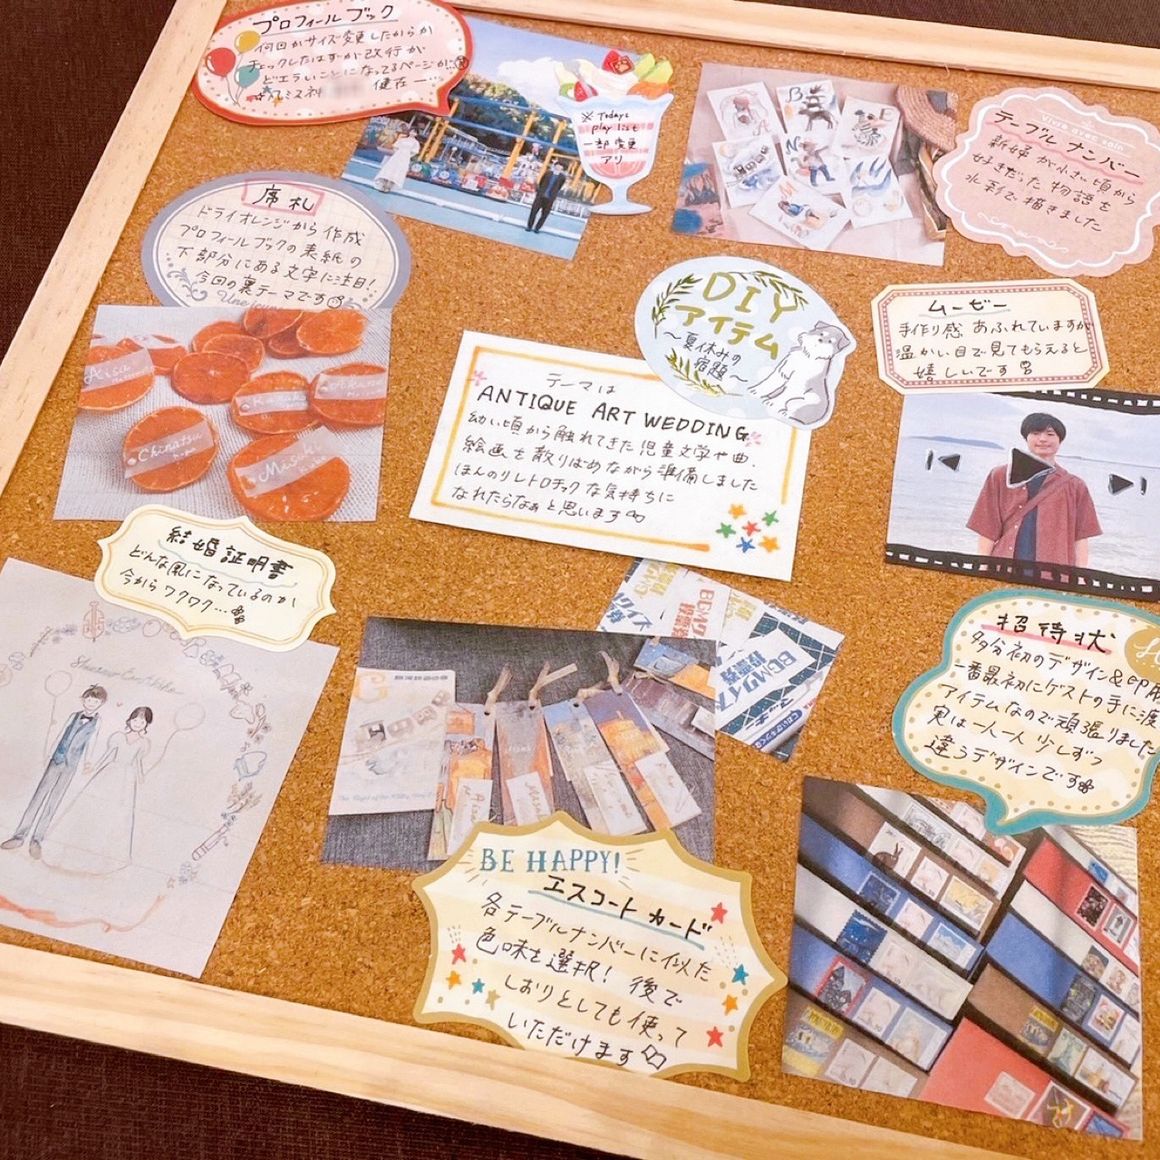 プロフィールブック
何回かサイズ変更したからか
チェックしたはずが改行が
どエラいことになってるページが…
☆ミス神 健在…
※Today's
play list
一部変更
アリ
Vivre avec soin
テーブルナンバー
新婦が小さい頃から
好きだった物語を
水彩で描きました
席札
ドライオレンジから作成
プロフィールブックの表紙の
下部分にある文字に注目!
今回の裏テーマです
DIY
アイテム
〜夏休みの
宿題〜
ムービー
手作り感あふれていますが
温かい目で見てもらえると
嬉しいです
テーマは
ANTIQUE ART WEDDING
幼い頃から触れてきた児童文学や曲、
絵画を散りばめながら準備しました
ほんのりレトロチックな気持ちに
なれたらなぁと思います
Aisa
Chinatsu
Misaki
結婚証明書
どんな風になっているのか
今からワクワク…
招待状
多分初のデザイン&印刷
一番最初にゲストの手に渡
アイテムなので頑張りました
実は一人一人少しずつ
違うデザインです
BGMクイズ
BE HAPPY!
エスコートカード
各テーブルナンバーに似た
色味を選択!後で
しおりとしても使って
いただけます